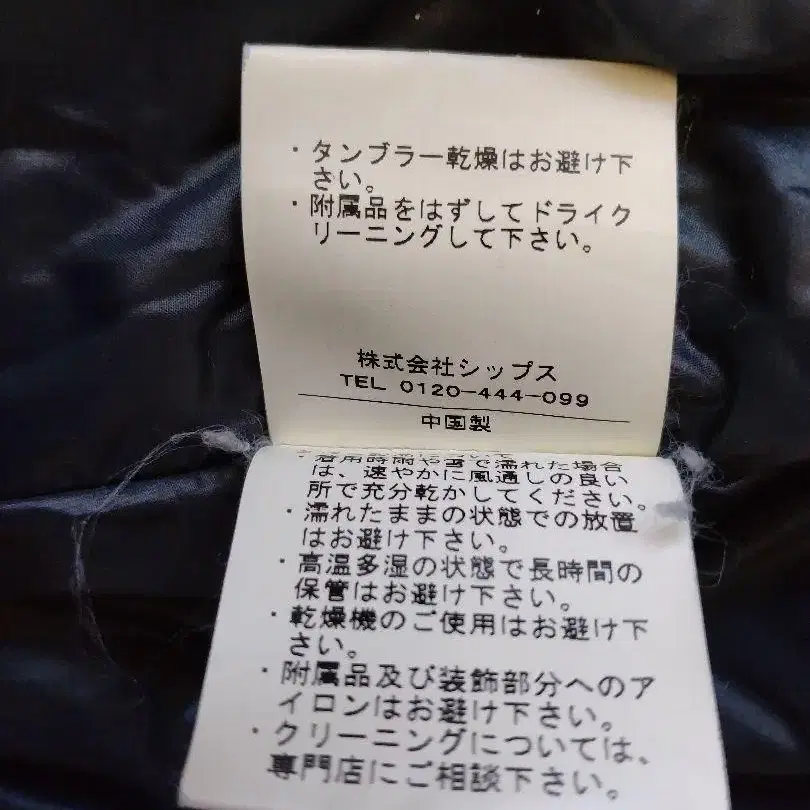 ・タンブラー乾燥はお避け下
さい。
・附属品をはずしてドライク
リーニングして下さい。
株式会社シップス
TEL 0120-444-099
中国製
・着用時雨や雪で濡れた場合
は、速やかに風通しの良い
所で充分乾かしてください。
・濡れたままの状態での放置
はお避け下さい。
・高温多湿の状態で長時間の
保管はお避け下さい。
・乾燥機のご使用はお避け下
さい。
・附属品及び装飾部分へのア
イロンはお避け下さい。
・クリーニングについては、
専門店にご相談下さい。